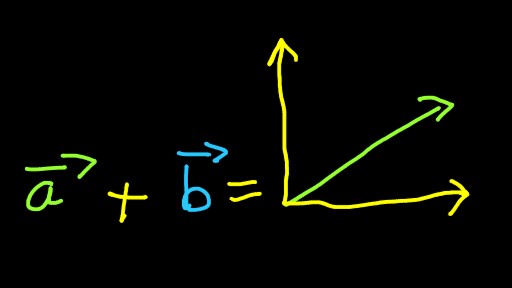 a⃗ + b⃗ =